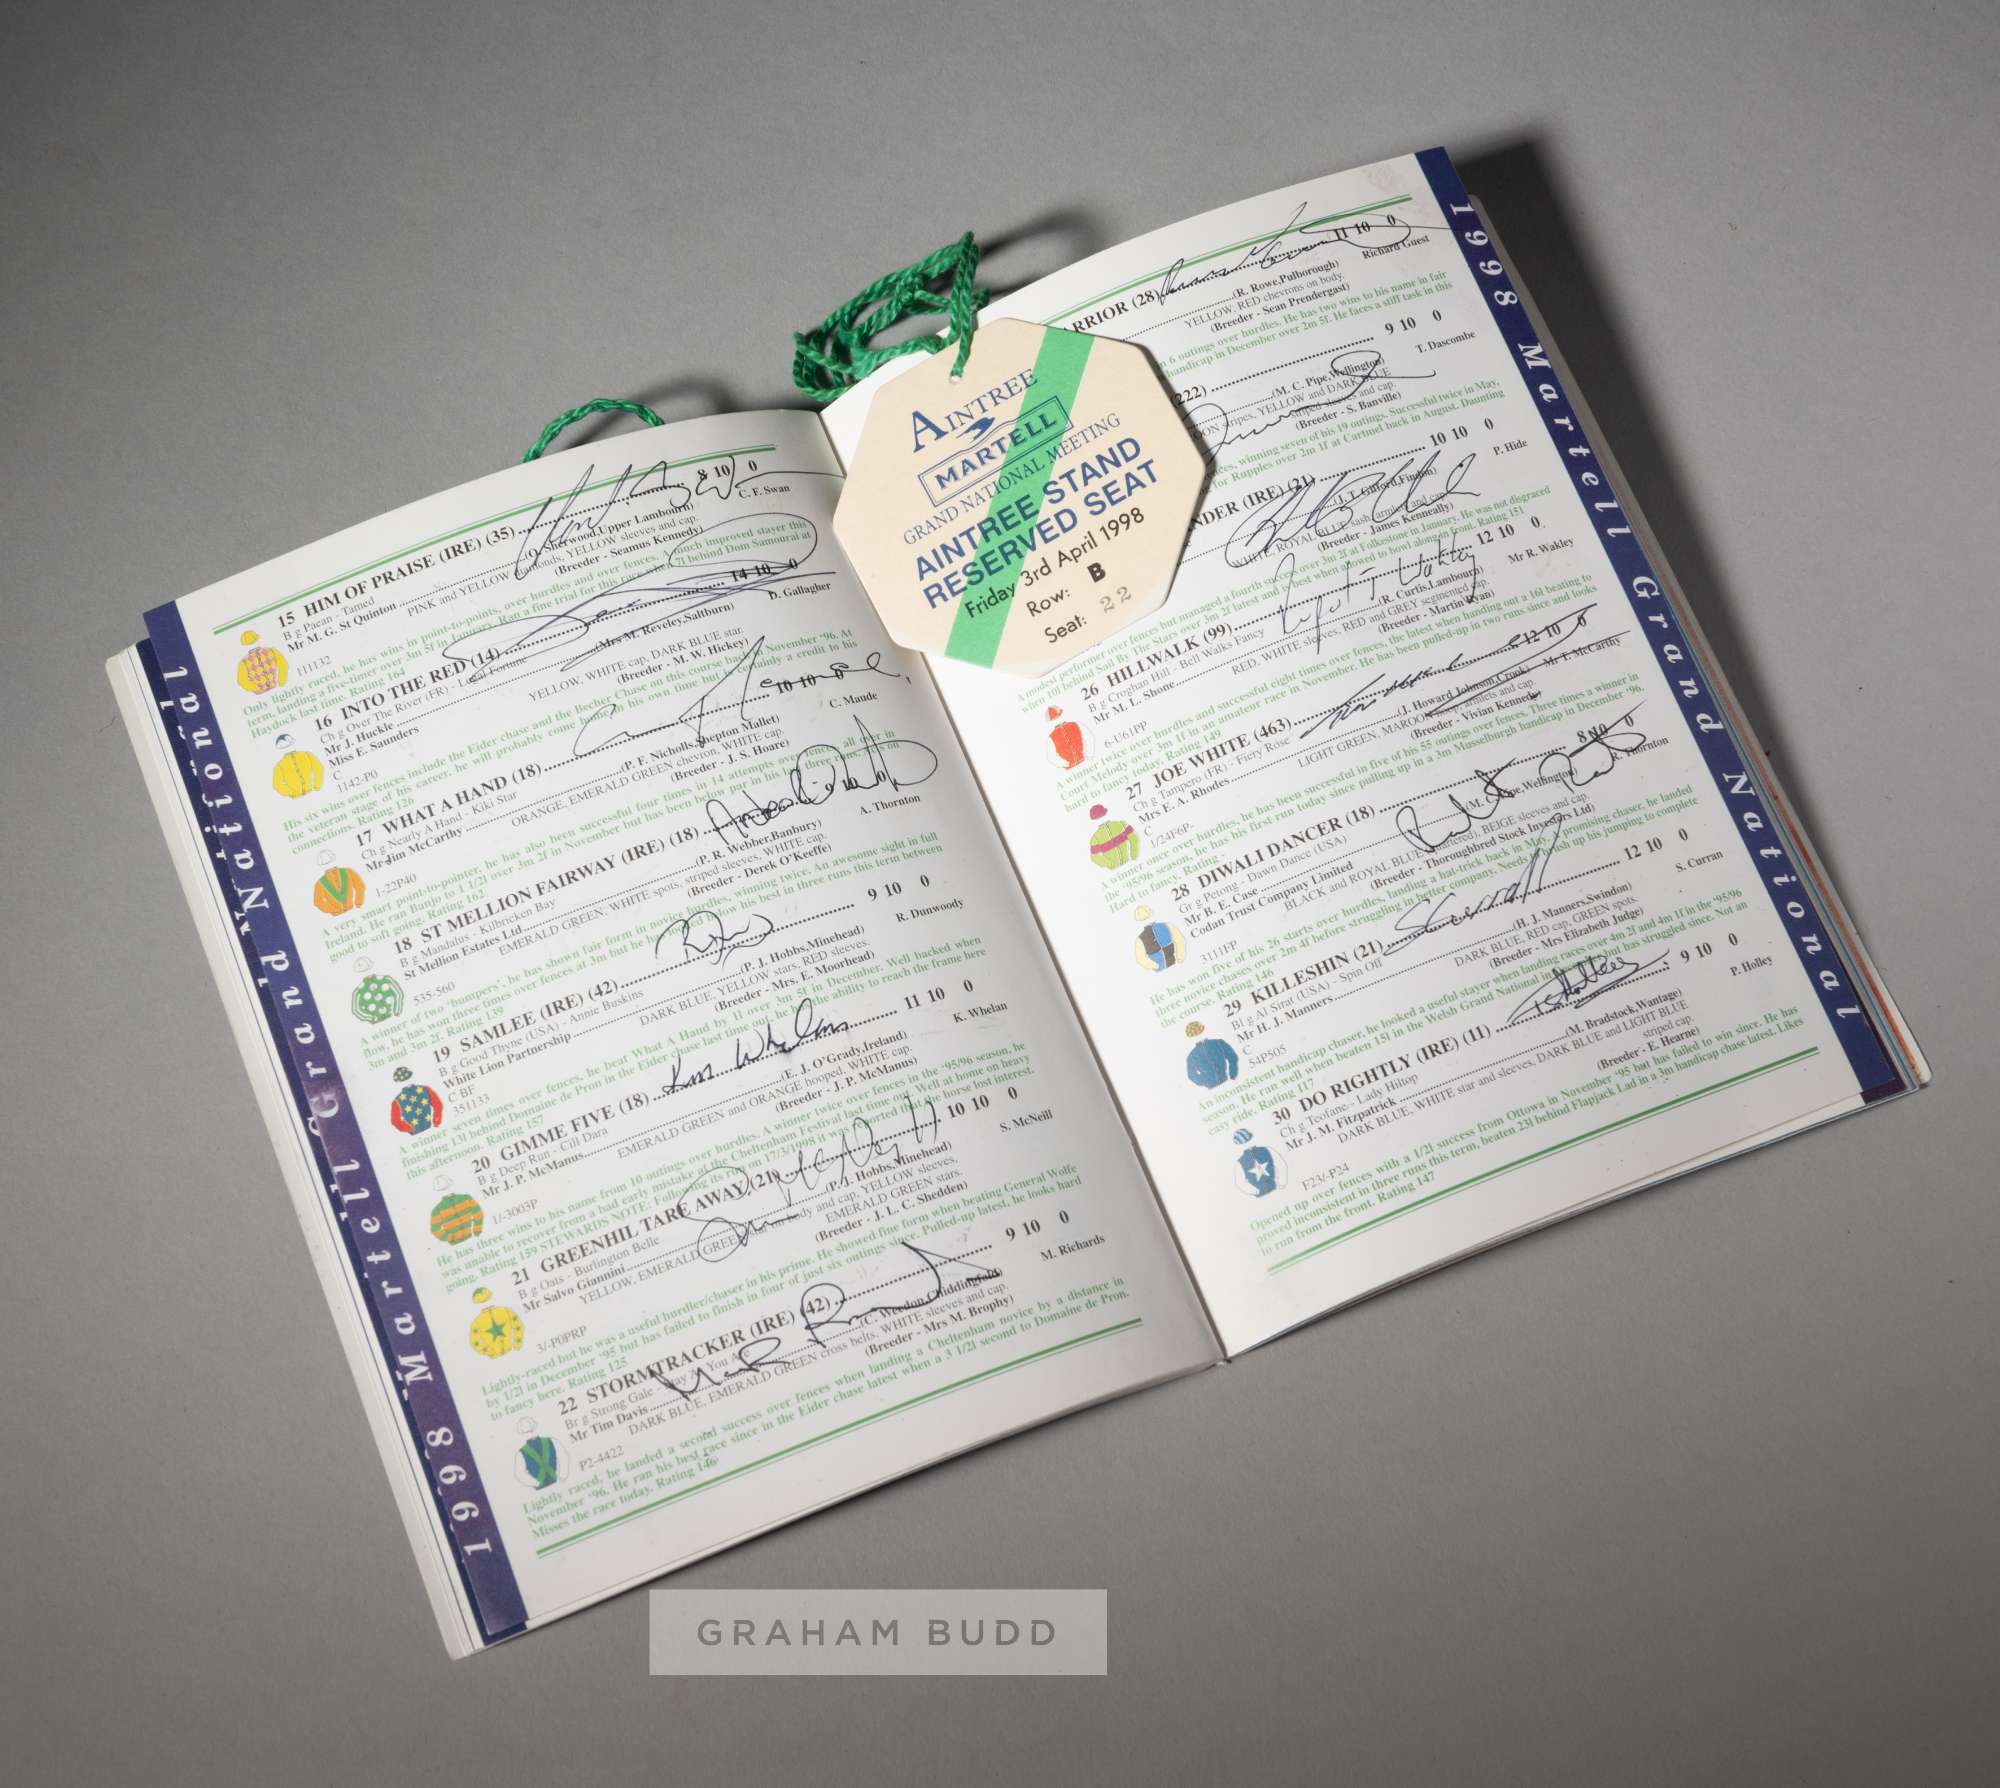 1998 Martell Grand National
15 HIM OF PRAISE (IRE) (35) 8 10 0
B g Pacan - Tamed C. F. Swan
Mr M. G. St Quinton (O. Sherwood,Upper Lambourn)
PINK and YELLOW diamonds, YELLOW sleeves and cap.
111132 (Breeder - Seamus Kennedy)
Lightly raced, he has wins in point-to-points, over hurdles and over fences. A much improved stayer this
term, landing a five-timer over 3m 5f in January. Ran a fine trial for this race when 7l behind Dom Samourai at
Haydock last time. Rating 164
16 INTO THE RED (14) 14 10 0
Ch g Over The River (FR) - Legal Fortune D. Gallagher
Mr J. Huckle (Mrs M. Reveley,Saltburn)
Miss E. Saunders YELLOW, WHITE cap, DARK BLUE star.
C
1142-P0 (Breeder - M. W. Hickey)
His six wins over fences include the Eider chase and the Becher Chase on this course back in November '96. At
the veteran stage of his career, he will probably come home in his own time but is certainly a credit to his
connections. Rating 126
17 WHAT A HAND (18) 10 10 0
Ch g Nearly A Hand - Kiki Star C. Maude
Mr Jim McCarthy (P. F. Nicholls,Shepton Mallet)
ORANGE, EMERALD GREEN chevron, WHITE cap.
1-22P40 (Breeder - J. S. Hoare)
A very smart point-to-pointer, he has also been successful four times in 14 attempts over fences, all later in
Ireland. He ran Banjo to 1 1/2l over 3m 2f in November but has been below par in his last three runs.
good to soft going. Rating 162
18 ST MELLION FAIRWAY (IRE) (18)
B g Mandalus - Kilbricken Bay A. Thornton
St Mellion Estates Ltd (P. R. Webber,Banbury)
EMERALD GREEN, WHITE spots, striped sleeves, WHITE cap.
535-560 (Breeder - Derek O'Keeffe)
A winner of two 'bumpers', he has shown fair form in novice hurdles, winning twice. An awesome sight in full
flow, he has won three times over fences at 3m but he has not shown his best in three runs this term between
3m and 3m 2f. Rating 139
19 SAMLEE (IRE) (42) 9 10 0
B g Good Thyne (USA) - Annie Buskins R. Dunwoody
White Lion Partnership (P. J. Hobbs,Minehead)
C BF DARK BLUE, YELLOW stars, RED sleeves.
351133 (Breeder - Mrs. E. Moorhead)
A winner seven times over fences, he beat What A Hand by 1l over 3m 5f in December. Well backed when
finishing 13l behind Domaine de Pron in the Eider chase last time out, he has the ability to reach the frame here
this afternoon. Rating 157
20 GIMME FIVE (18) Ken Whelan 11 10 0
B g Deep Run - Cill Dara K. Whelan
Mr J. P. McManus (E. J. O'Grady,Ireland)
EMERALD GREEN and ORANGE hooped, WHITE cap.
1/-3003P (Breeder - J. P. McManus)
He has three wins to his name from 10 outings over hurdles. A winner twice over fences in the '95/96 season, he
was unable to recover from a bad early mistake at the Cheltenham Festival last time out. Well at home on heavy
going. Rating 159 STEWARDS NOTE: Following its run on 17/3/1998 it was reported that the horse lost interest.
21 GREENHIL TARE AWAY (21) 10 10 0
B g Oats - Burlington Belle S. McNeill
Mr Salvo Giannini (P. J. Hobbs,Minehead)
YELLOW, EMERALD GREEN star on body and cap, YELLOW sleeves,
EMERALD GREEN stars.
3/-P0PRP (Breeder - J. L. C. Shedden)
Lightly-raced but he was a useful hurdler/chaser in his prime. He showed fine form when beating General Wolfe
by 1/2l in December '95 but has failed to finish in four of just six outings since. Pulled-up latest, he looks hard
to fancy here. Rating 125
22 STORMTRACKER (IRE) (42) 9 10 0
Br g Strong Gale - Stay As You Are M. Richards
Mr Tim Davis (C. Weedon,Chiddingfold)
DARK BLUE, EMERALD GREEN cross belts, WHITE sleeves and cap.
P2-4422 (Breeder - Mrs M. Brophy)
Lightly raced, he landed a second success over fences when landing a Cheltenham novice by a distance in
November '96. He ran his best race since in the Eider chase latest when a 3 1/2l second to Domaine de Pron.
Misses the race today. Rating 146
AINTREE
MARTELL
GRAND NATIONAL MEETING
AINTREE STAND
RESERVED SEAT
Friday 3rd April 1998
Row: B
Seat: 22
RRIOR (28) 11 10 0
Richard Guest
(R. Rowe,Pulborough)
YELLOW, RED chevrons on body.
(Breeder - Sean Prendergast)
6 outings over hurdles. He has two wins to his name in fair
handicap in December over 2m 5f. He faces a stiff task in this
(222) 9 10 0
T. Dascombe
(M. C. Pipe,Wellington)
OON stripes, YELLOW and DARK BLUE
striped sleeves and cap.
(Breeder - S. Banville)
ces, winning seven of his 19 outings. Successful twice in May,
for Rupples over 2m 1f at Cartmel back in August. Daunting
NDER (IRE) (21) 10 10 0
P. Hide
(J. T. Gifford,Findon)
WHITE, ROYAL BLUE sash, armlets and cap.
(Breeder - James Kenneally)
A modest performer over fences but managed a fourth success over 3m 2f at Folkestone in January. He was not disgraced
when 10l behind Soil By The Stars over 3m 2f latest and is best when allowed to bowl along in front. Rating 151
26 HILLWALK (99) Rupert Wakley 12 10 0
B g Croghan Hill - Bell Walks Fancy Mr R. Wakley
Mr M. L. Shone (R. Curtis,Lambourn)
RED, WHITE sleeves, RED and GREY segmented cap.
6-U61PP (Breeder - Martin Ryan)
A winner twice over hurdles and successful eight times over fences, the latest when handing out a 16l beating to
Court Melody over 3m 1f in an amateur race in November. He has been pulled-up in two runs since and looks
hard to fancy today. Rating 149
27 JOE WHITE (463) 12 10 0
Ch g Tampero (FR) - Fiery Rose Mr T. McCarthy
Mrs E. A. Rhodes (J. Howard Johnson,Crook)
C LIGHT GREEN, MAROON hoop, armlets and cap.
1/24F6P- (Breeder - Vivian Kennedy)
A winner once over hurdles, he has been successful in five of his 55 outings over fences. Three times a winner in
the '95/96 season, he has his first run today since pulling up in a 3m Musselburgh handicap in December '96.
Hard to fancy. Rating -
28 DIWALI DANCER (18) 8 10 0
Gr g Petong - Dawn Dance (USA) R. Thornton
Mr B. E. Case (M. C. Pipe,Wellington)
Codan Trust Company Limited BLACK and ROYAL BLUE (quartered), BEIGE sleeves and cap.
3111FP (Breeder - Thoroughbred Stock Investors Ltd)
He has won five of his 26 starts over hurdles, landing a hat-trick back in May. A promising chaser, he landed
three novice chases over 2m 4f before struggling in better company. Needs to brush up his jumping to complete
the course. Rating 146
29 KILLESHIN (21) 12 10 0
Bl g Al Sirat (USA) - Spin Off S. Curran
Mr H. J. Manners (H. J. Manners,Swindon)
C DARK BLUE, RED cap, GREEN spots.
54P505 (Breeder - Mrs Elizabeth Judge)
An inconsistent handicap chaser, he looked a useful stayer when landing races over 4m 2f and 4m 1f in the '95/96
season. He ran well when beaten 15l in the Welsh Grand National in but has struggled since. Not an
easy ride. Rating 117
30 DO RIGHTLY (IRE) (11) 9 10 0
Ch g Teofane - Lady Hiltop P. Holley
Mr J. M. Fitzpatrick (M. Bradstock,Wantage)
DARK BLUE, WHITE star and sleeves, DARK BLUE and LIGHT BLUE
striped cap.
F23/-P24 (Breeder - E. Hearne)
Opened up over fences with a 1/2l success from Ottowa in November '95 but has failed to win since. He has
proved inconsistent in three runs this term, beaten 23l behind Flapjack Lad in a 3m handicap chase latest. Likes
to run from the front. Rating 147
1998 Martell Grand National
GRAHAM BUDD